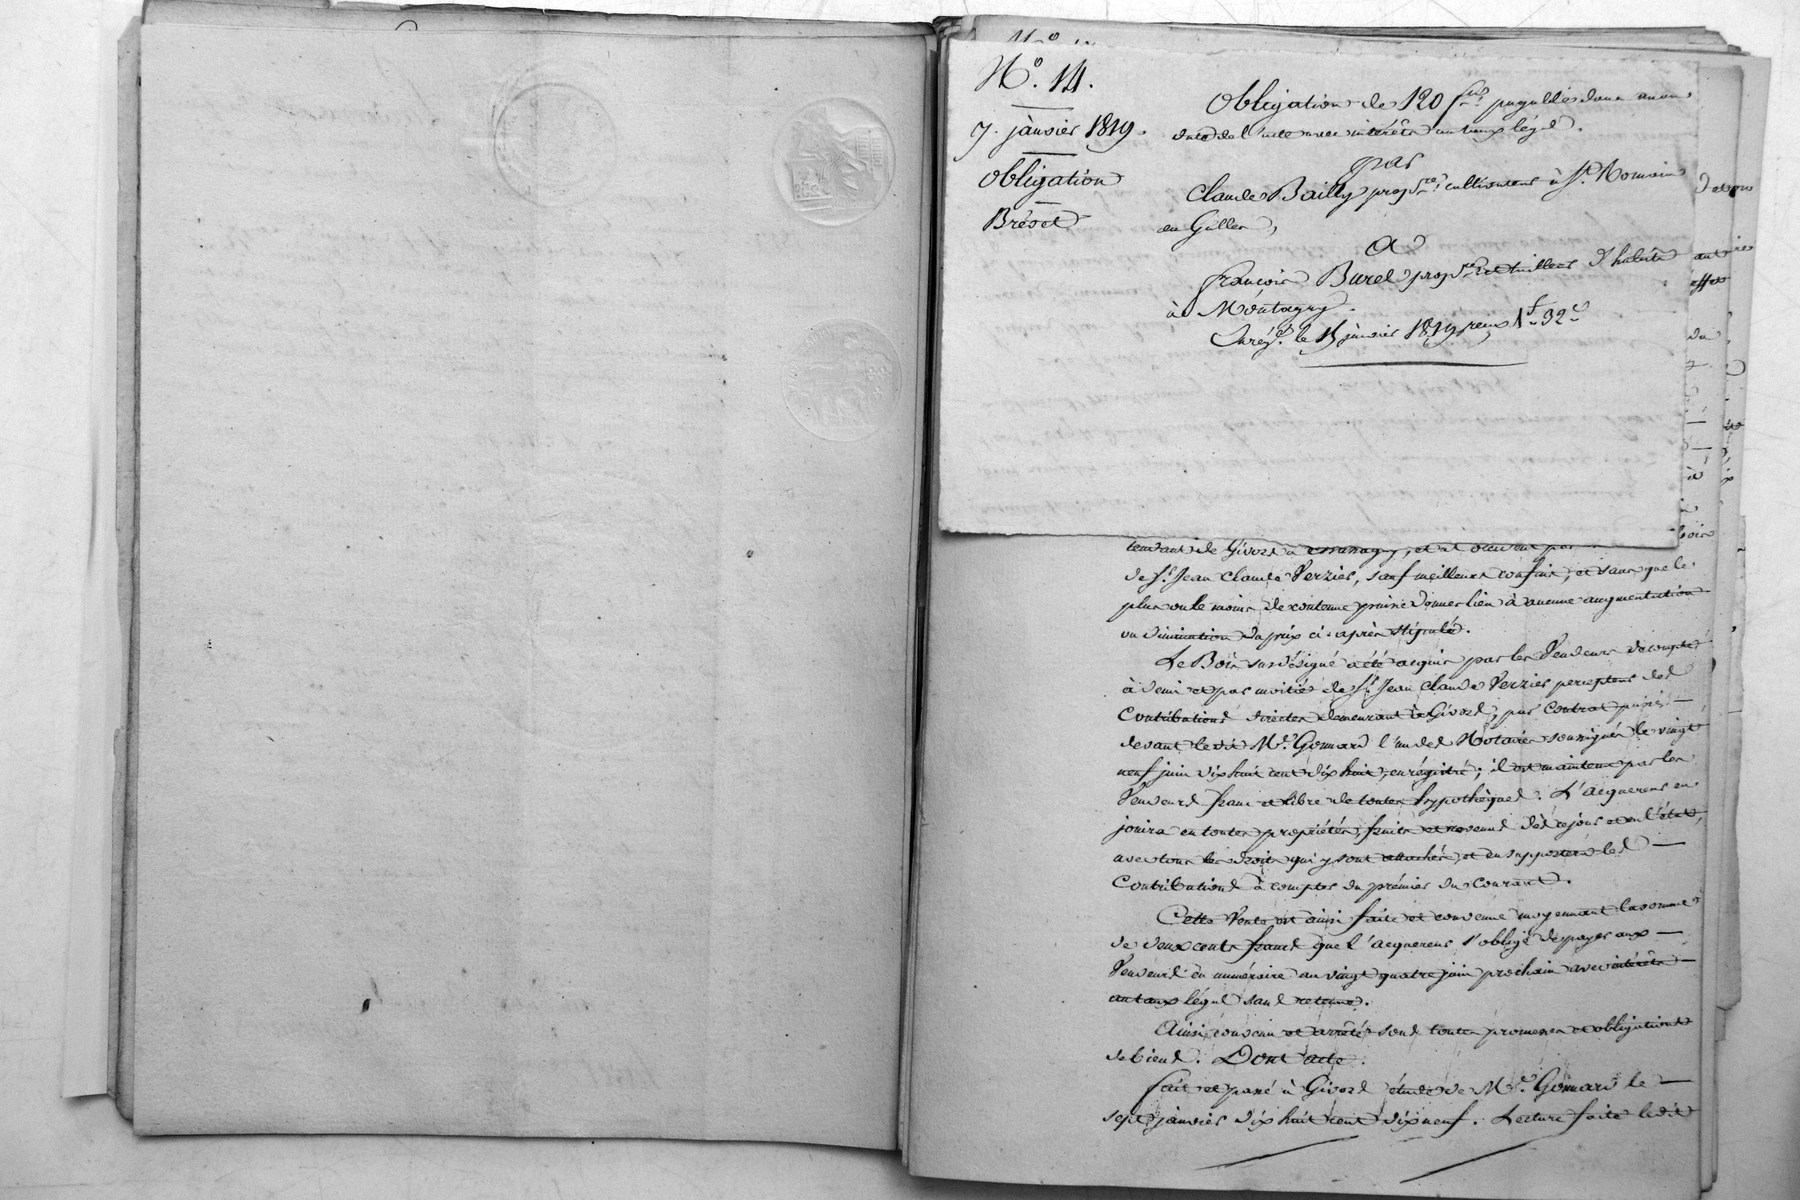 N.° 14.
7. jànvier 1819.
Obligation
Brévet
Obligation de 120 f.cs payables dans un an
date de l'acte avec intérêts au taux légal.
par
Claude Bailly prop.re cultivateur à S.t Romain
en Gallier,
A
françois Burel prop.re et tailleur d'habits
à Montagny.
Enrég.é le 15 janvier 1819 reçu 1f 32c
tendant de Givord à
de S.r Jean Claude Verzier, sauf meilleurs confins, et sans que le
plus ou le moins de contenue puisse donner lieu à aucune augmentation
ou diminution du prix ci-après stipulé.
Le Bois susdésigné a été acquis par les Vendeurs de compte
à demi et par moitié de S.r Jean Claude Verzier percepteur des
Contributions directes demeurant à Givord, par contrat passé
devant ledit M.e Gonnard l'un des Notaires soussignés le vingt
neuf juin dix huit cent dix huit, enrégistré; il est maintenu par les
Vendeurs franc et libre de toutes hypothèques. L'acquereur en
jouira en toutes propriétés, fruits et revenus dès ce jour et en l'état,
avec tous les droits qui y sont attachés, et en supportera les
Contributions à compter du prémier du Courant.
Cette Vente est ainsi faite et convenue moyennant la somme
de deux cents francs que l'acquereur s'oblige de payer aux
Vendeurs en numéraire au vingt quatre juin prochain avec intérêts
au taux légal sans retenue.
Ainsi convenu et arrêté sous toutes promesses et obligations
de biens. Dont acte.
fait et passé à Givord étude de M.e Gonnard le
sept janvier dix huit cent dix neuf. Lecture faite ledit